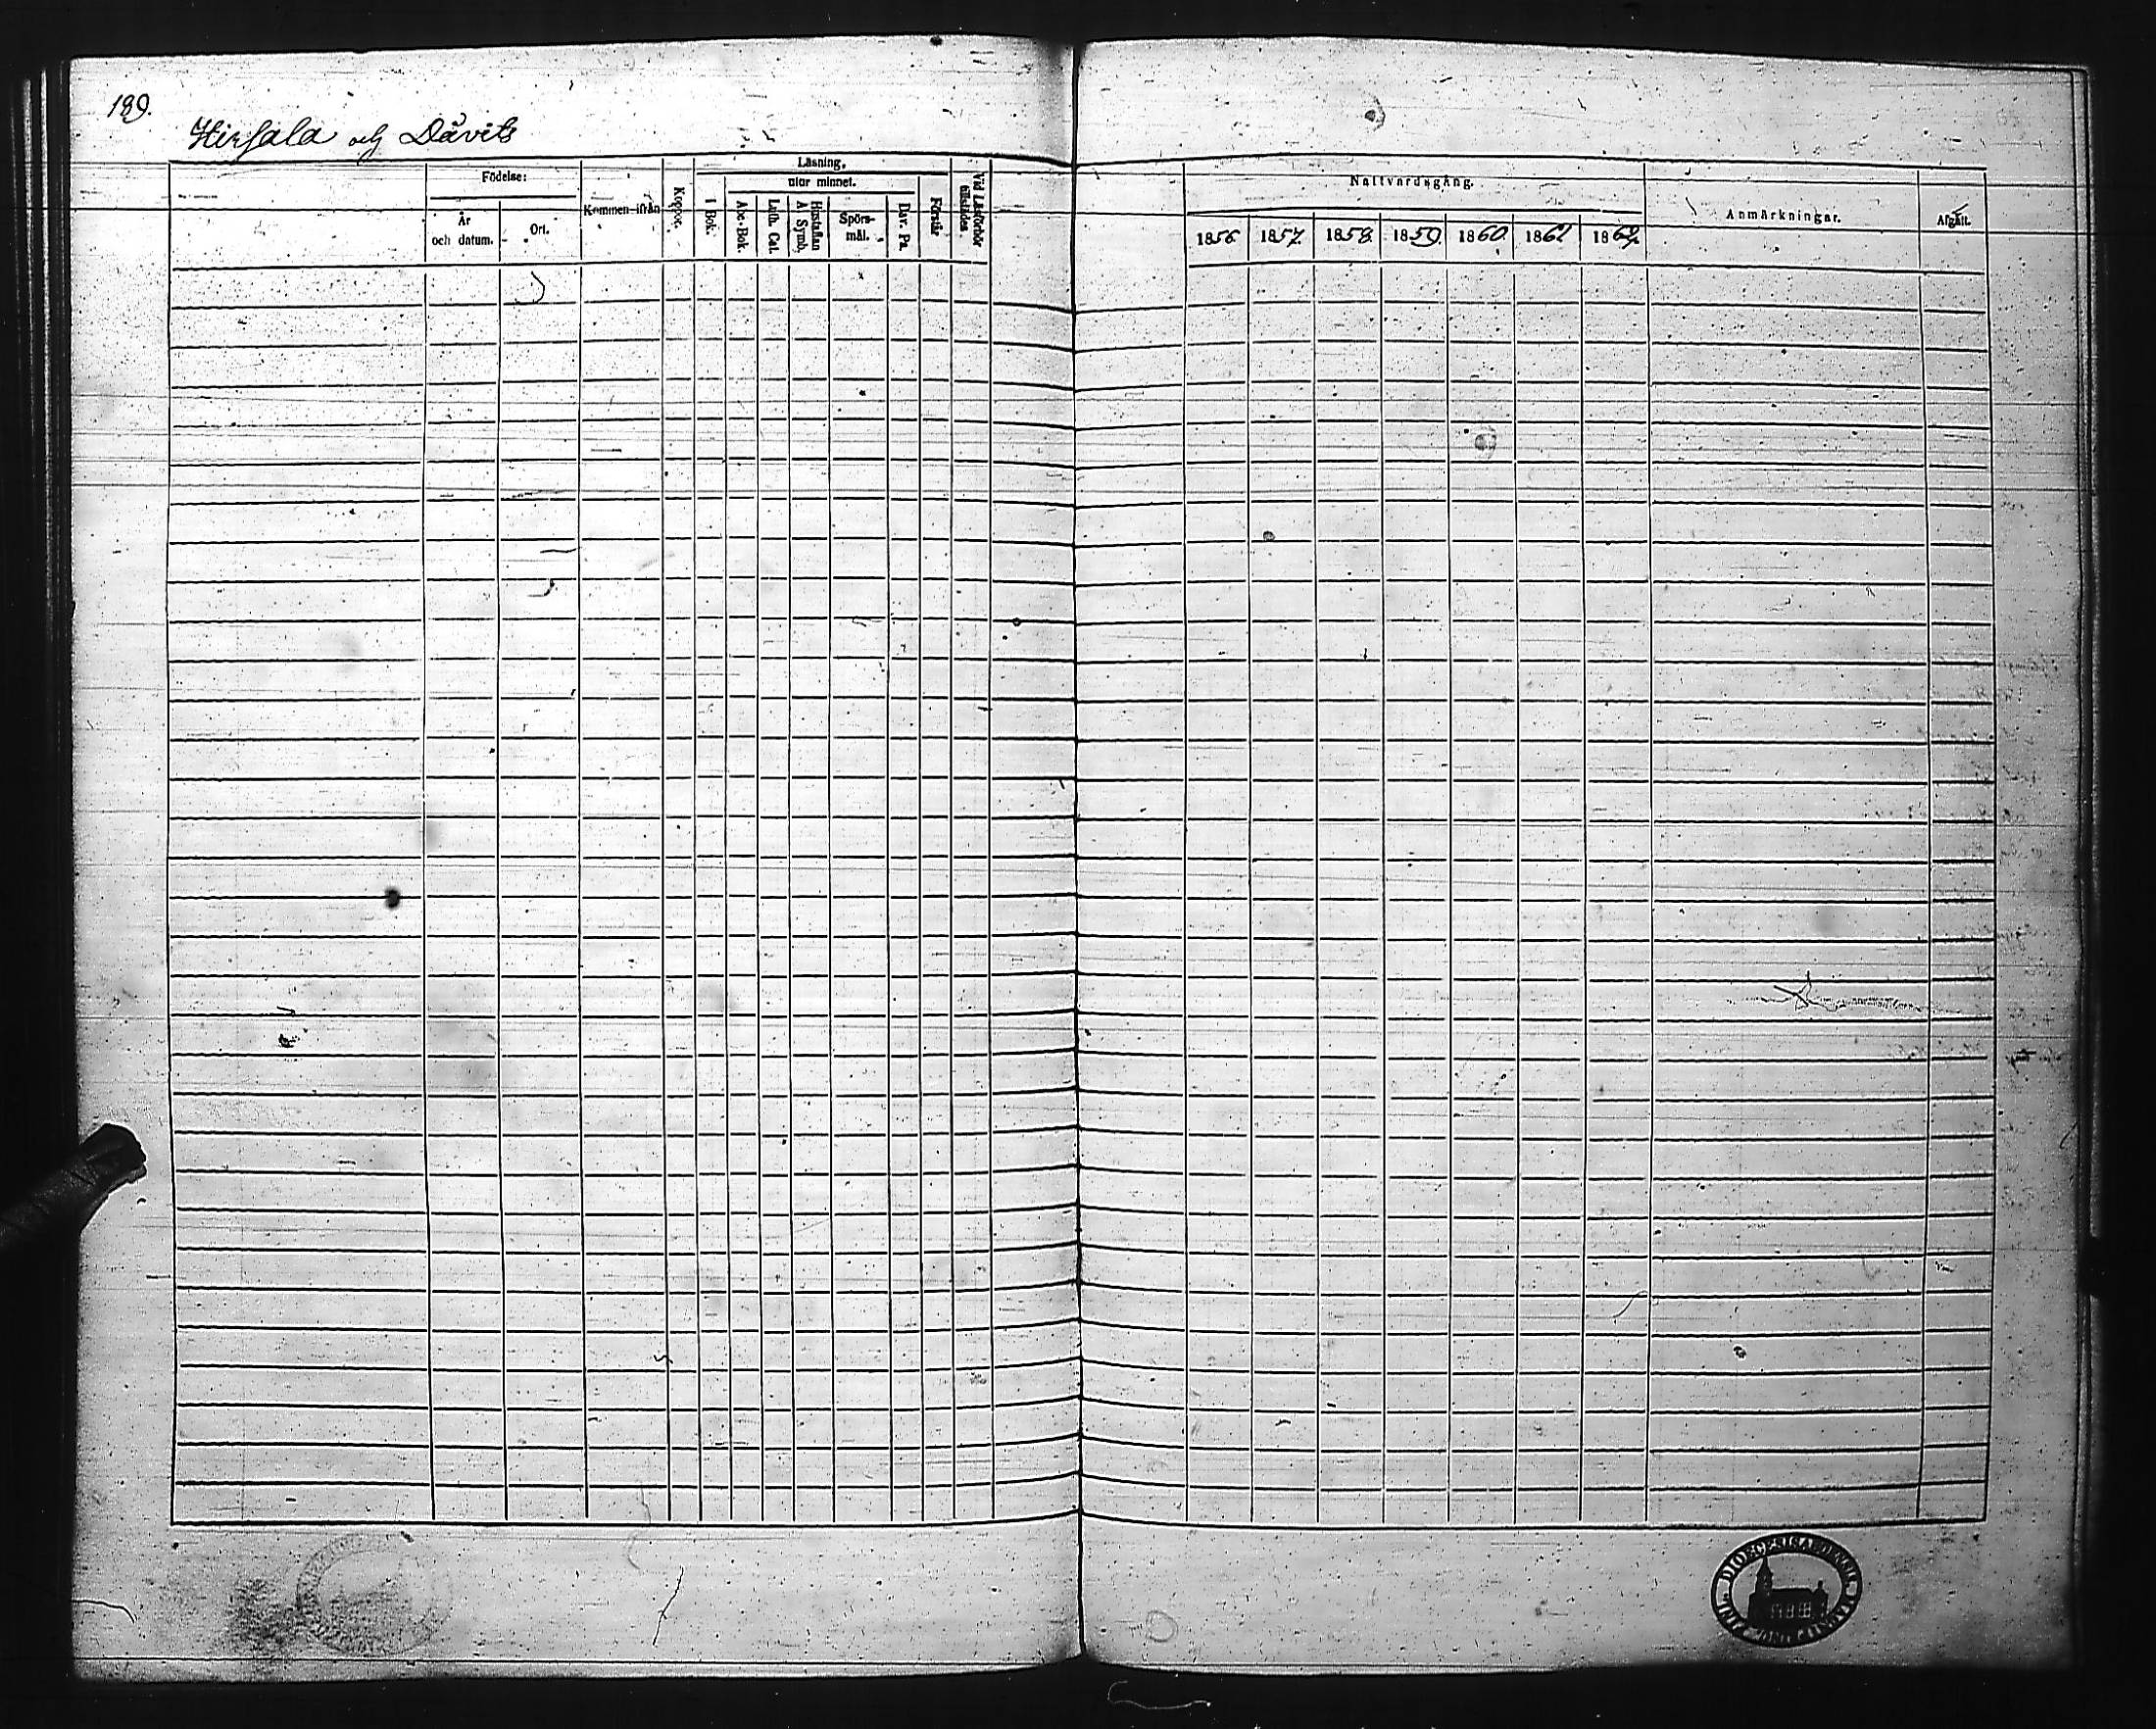 189.
Hirsala och Dåvits
Födelse:
År och datum.
Ort.
Kommen ifrån
Koppor.
Läsning,
I Bok.
utur minnet.
Abc-Bok.
Luth. Cat.
Hustaflan A. Symb.
Spörs-mål.
Dav. Ps.
Förstår
Vid Läsförhör tillstädes.
Nattvardsgång.
1856 1857. 1858. 1859. 1860. 1861
Anmärkningar.
Afgått.